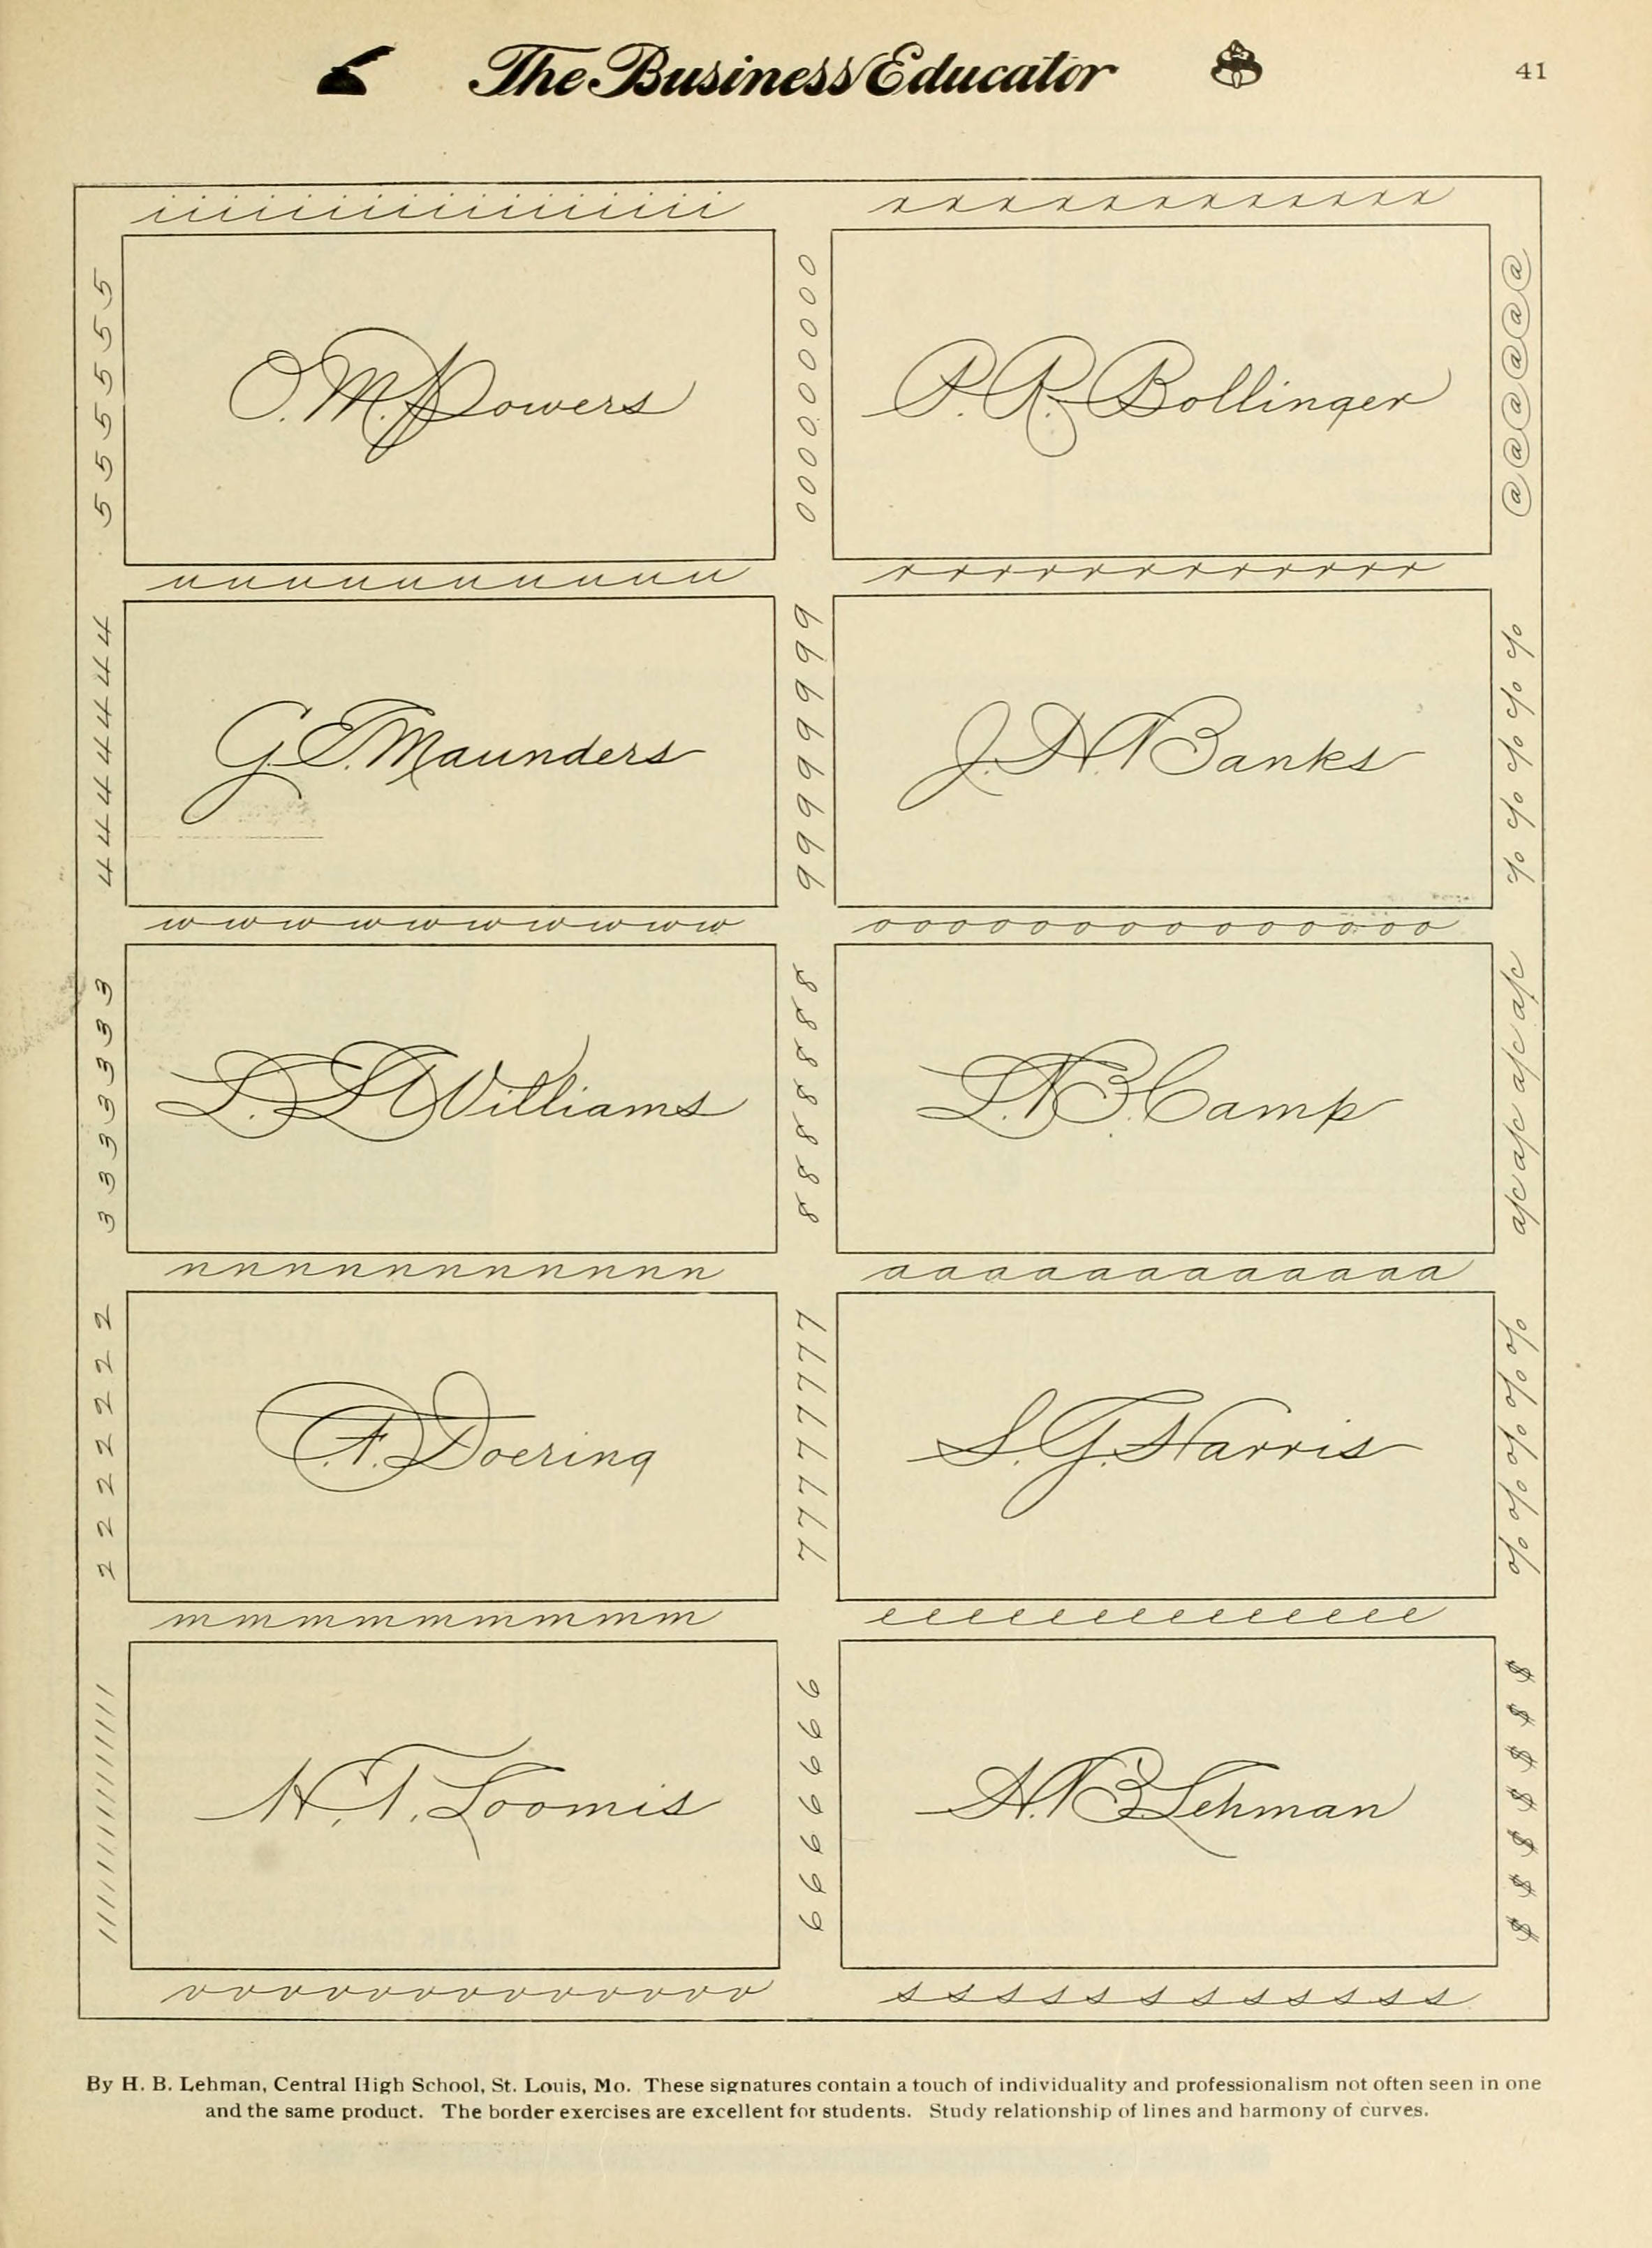 The Business Educator
41
i i i i i i i i i i i i i i i i
x x x x x x x x x x x x x x x
5 5 5 5 5 5
O. M. Powers
0 0 0 0 0 0 0 0 0
P. R. Bollinger
@ @ @ @ @ @
u u u u u u u u u u u
r r r r r r r r r r r r
4 4 4 4 4 4 4
G. E. Maunders
9 9 9 9 9 9 9 9
J. H. Banks
c/o c/o c/o c/o c/o
w w w w w w w w w w
o o o o o o o o o o o o o o o o
3 3 3 3 3 3 3
L. L. Williams
8 8 8 8 8 8 8
L. B. Camp
a/c a/c a/c a/c a/c
n n n n n n n n n n n n n
a a a a a a a a a a a a a a
2 2 2 2 2 2 2
A. Doering
7 7 7 7 7 7 7 7
S. G. Harris
% % % % %
m m m m m m m m m m
e e e e e e e e e e e e e e
1 1 1 1 1 1 1 1 1 1 1 1 1 1
H. T. Loomis
6 6 6 6 6 6 6
H. B. Lehman
$ $ $ $ $ $ $
v v v v v v v v v v v v v v
s s s s s s s s s s s s s
By H. B. Lehman, Central High School, St. Louis, Mo. These signatures contain a touch of individuality and professionalism not often seen in one
and the same product. The border exercises are excellent for students. Study relationship of lines and harmony of curves.